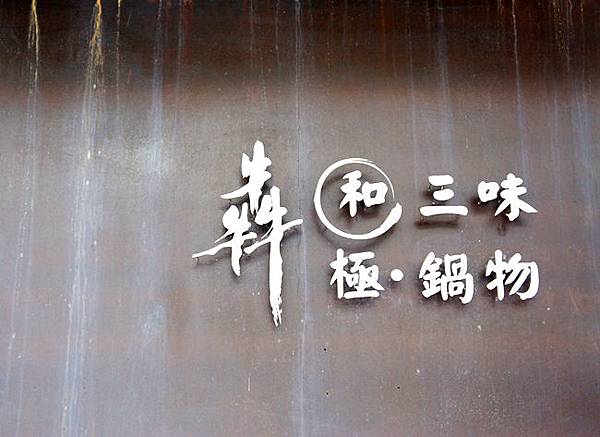 犇
和三味
極·鍋物